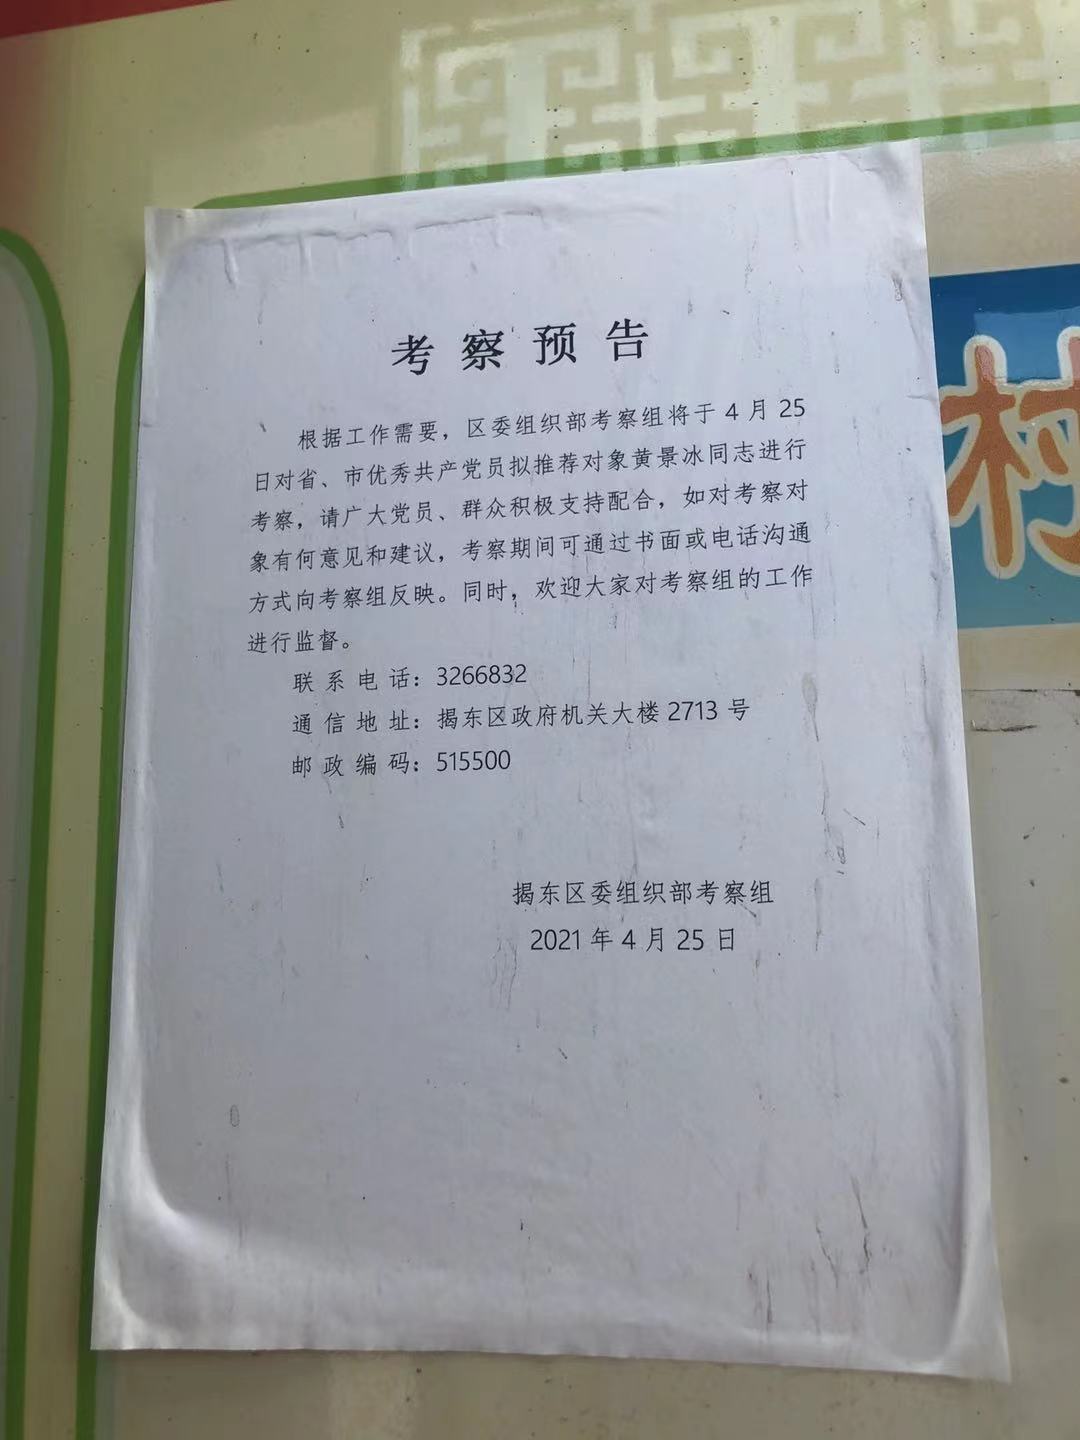 考察预告
根据工作需要，区委组织部考察组将于4月25
日对省、市优秀共产党员拟推荐对象黄景冰同志进行
考察，请广大党员、群众积极支持配合，如对考察对
象有何意见和建议，考察期间可通过书面或电话沟通
方式向考察组反映。同时，欢迎大家对考察组的工作
进行监督。
联系电话：3266832
通信地址：揭东区政府机关大楼2713号
邮政编码：515500
揭东区委组织部考察组
2021年4月25日
村